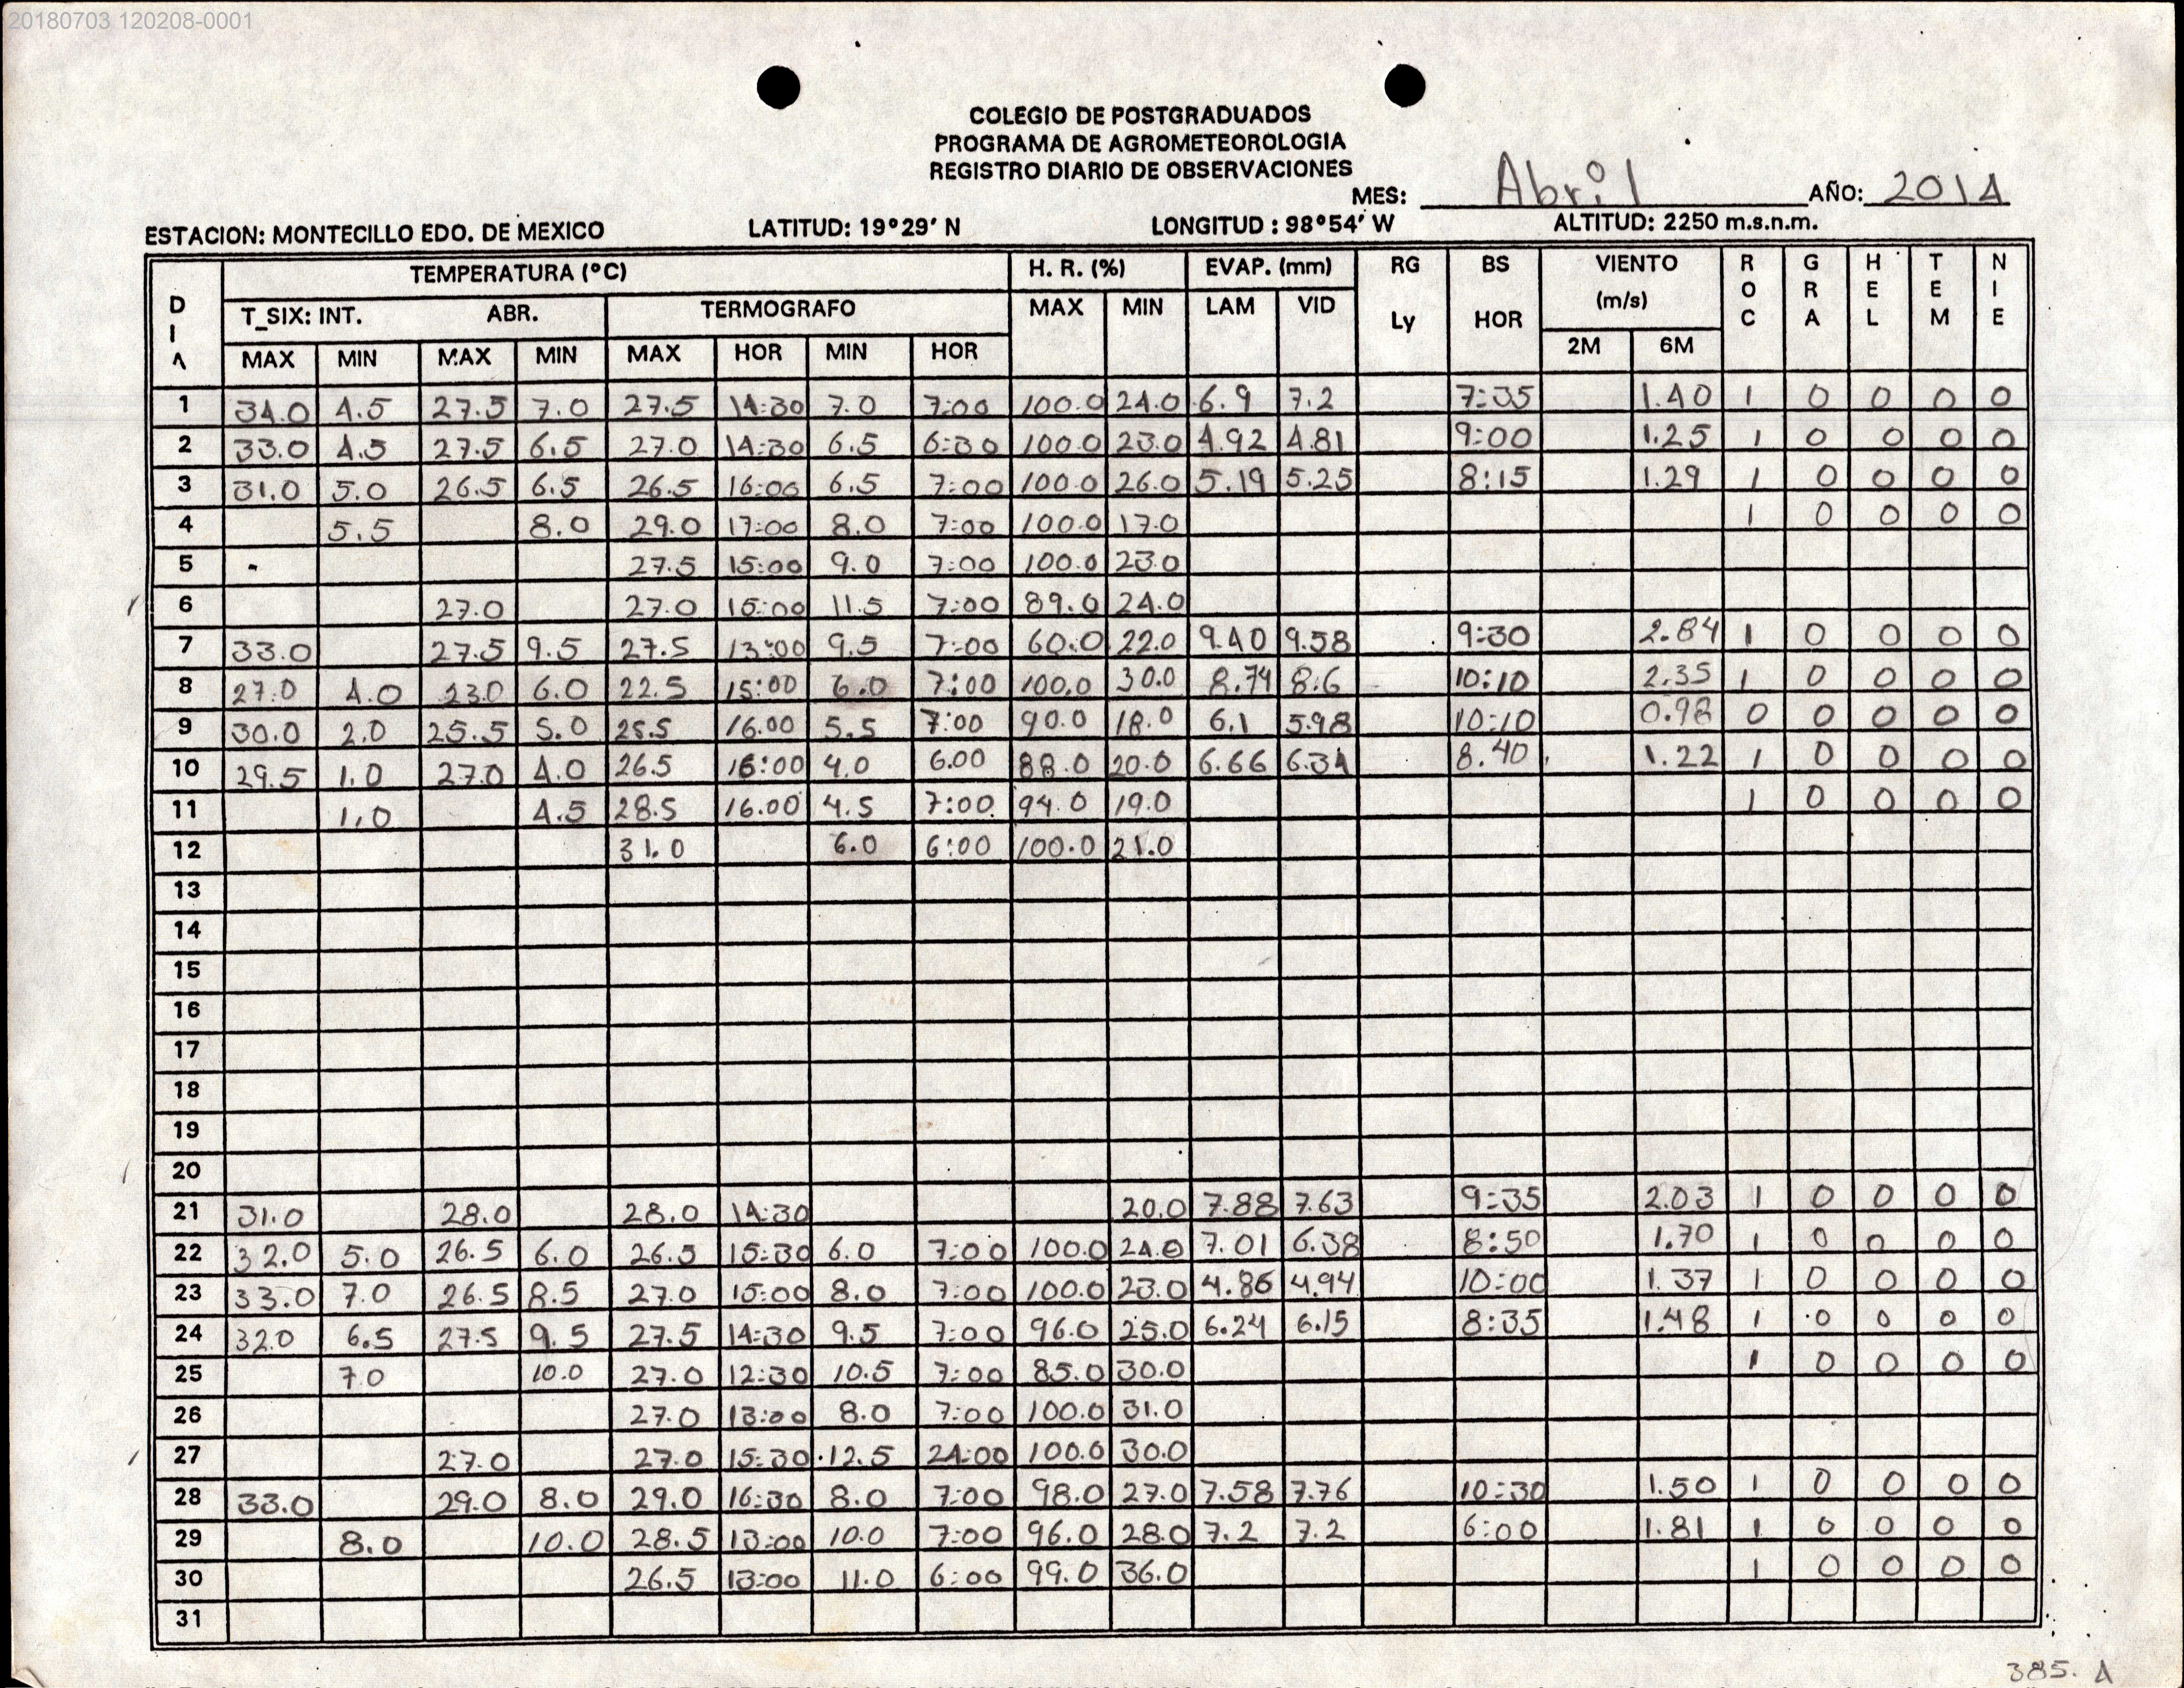 20180703 120208-0001
COLEGIO DE POSTGRADUADOS
PROGRAMA DE AGROMETEOROLOGIA
REGISTRO DIARIO DE OBSERVACIONES
MES: Abril AÑO: 2014
ESTACION: MONTECILLO EDO. DE MEXICO LATITUD: 19°29' N LONGITUD : 98°54' W ALTITUD: 2250 m.s.n.m.
DIA TEMPERATURA (°C) H. R. (%) EVAP. (mm) RG BS VIENTO ROC GRA HEL TEM NIE
T_SIX: INT. ABR. TERMOGRAFO MAX MIN LAM VID Ly HOR (m/s)
MAX MIN MAX MIN MAX HOR MIN HOR 2M 6M
1 34.0 4.5 27.5 7.0 27.5 14:30 7.0 7:00 100.0 24.0 6.9 7.2 7:35 1.40 1 0 0 0 0
2 33.0 4.5 27.5 6.5 27.0 14:30 6.5 6:30 100.0 23.0 4.92 4.81 9:00 1.25 1 0 0 0 0
3 31.0 5.0 26.5 6.5 26.5 16:00 6.5 7:00 100.0 26.0 5.19 5.25 8:15 1.29 1 0 0 0 0
4 5.5 8.0 29.0 17:00 8.0 7:00 100.0 17.0 1 0 0 0 0
5 27.5 15:00 9.0 7:00 100.0 23.0
6 27.0 27.0 15:00 11.5 7:00 89.0 24.0
7 33.0 27.5 9.5 27.5 13:00 9.5 7:00 60.0 22.0 9.40 9.58 9:30 2.84 1 0 0 0 0
8 27.0 4.0 23.0 6.0 22.5 15:00 6.0 7:00 100.0 30.0 8.74 8.6 10:10 2.35 1 0 0 0 0
9 30.0 2.0 25.5 5.0 25.5 16.00 5.5 7:00 90.0 18.0 6.1 5.98 10:10 0.98 0 0 0 0 0
10 29.5 1.0 27.0 4.0 26.5 16:00 4.0 6.00 88.0 20.0 6.66 6.34 8.40 1.22 1 0 0 0 0
11 1.0 4.5 28.5 16.00 4.5 7:00 94.0 19.0 1 0 0 0 0
12 31.0 6.0 6:00 100.0 21.0
13
14
15
16
17
18
19
20
21 31.0 28.0 28.0 14:30 20.0 7.88 7.63 9:35 2.03 1 0 0 0 0
22 32.0 5.0 26.5 6.0 26.5 15:30 6.0 7:00 100.0 24.0 7.01 6.38 8:50 1.70 1 0 0 0 0
23 33.0 7.0 26.5 8.5 27.0 15:00 8.0 7:00 100.0 23.0 4.86 4.94 10:00 1.37 1 0 0 0 0
24 32.0 6.5 27.5 9.5 27.5 14:30 9.5 7:00 96.0 25.0 6.24 6.15 8:35 1.48 1 0 0 0 0
25 7.0 10.0 27.0 12:30 10.5 7:00 85.0 30.0 1 0 0 0 0
26 27.0 13:00 8.0 7:00 100.0 31.0
27 27.0 27.0 15:30 12.5 24:00 100.0 30.0
28 33.0 29.0 8.0 29.0 16:30 8.0 7:00 98.0 27.0 7.58 7.76 10:30 1.50 1 0 0 0 0
29 8.0 10.0 28.5 13:00 10.0 7:00 96.0 28.0 7.2 7.2 6:00 1.81 1 0 0 0 0
30 26.5 13:00 11.0 6:00 99.0 36.0 1 0 0 0 0
31
385. A